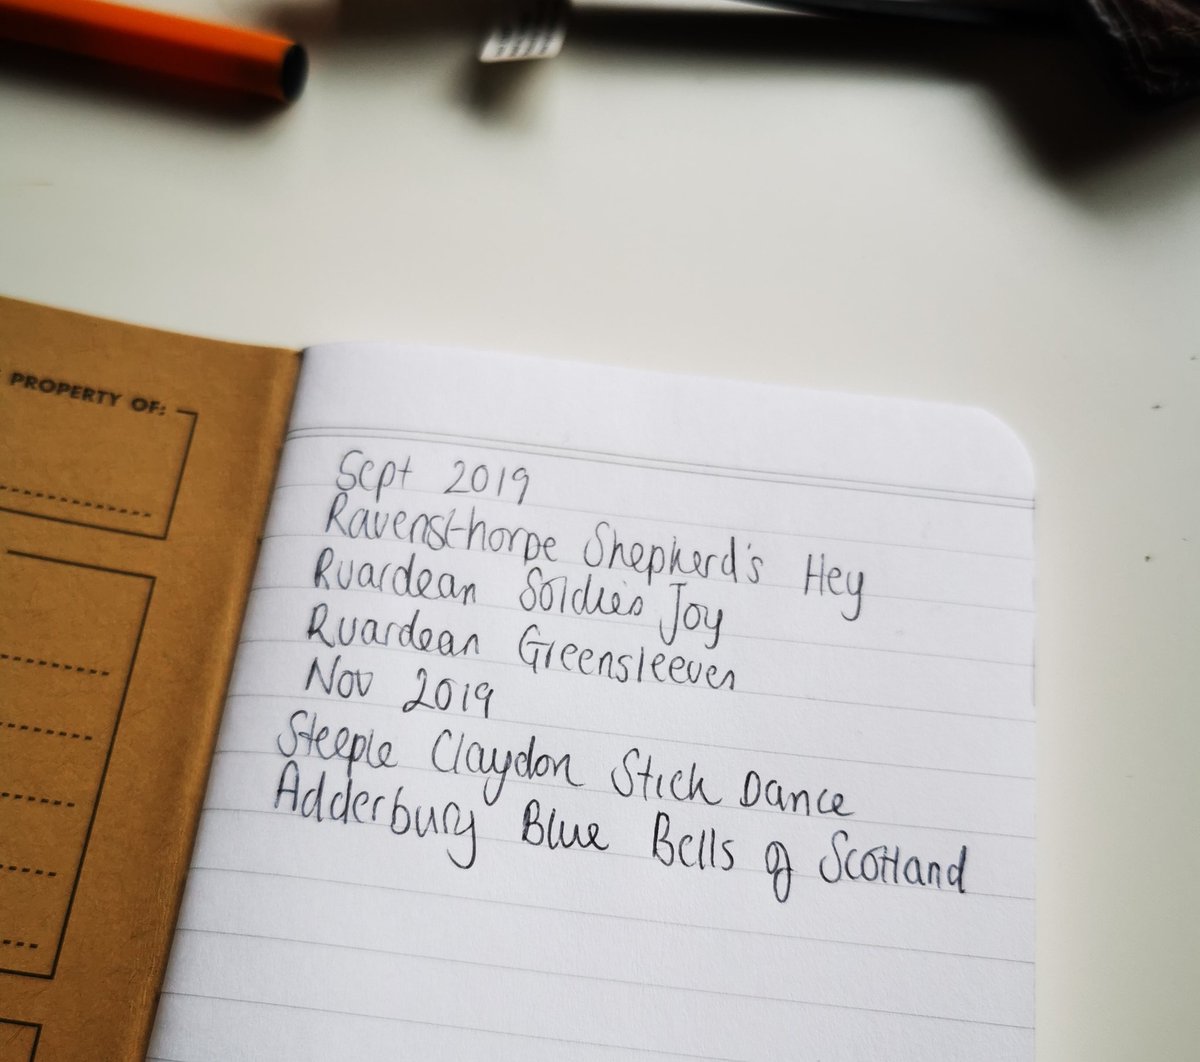 PROPERTY OF:
Sept 2019
Ravensthorpe Shepherd's Hey
Ruardean Soldies Joy
Ruardean Greensleeves
Nov 2019
Steeple Claydon Stick Dance
Adderbury Blue Bells of Scotland